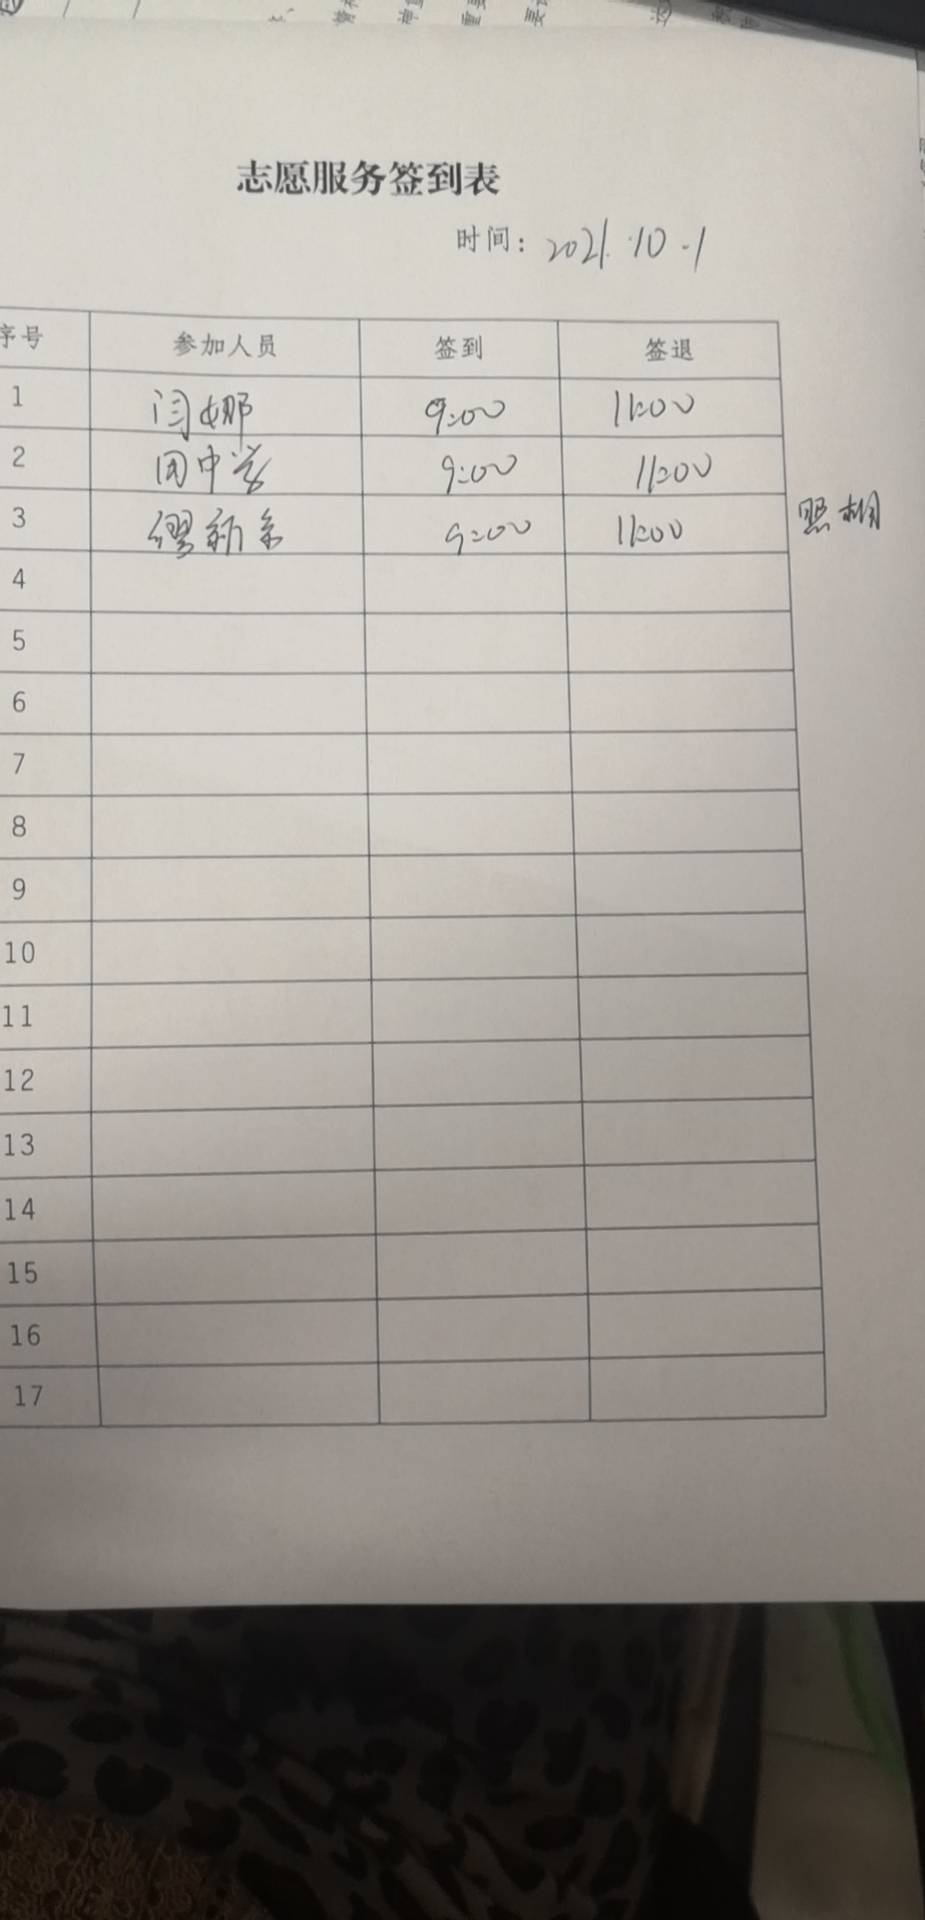 志愿服务签到表
时间: 2021.10.1
序号 参加人员 签到 签退
1 闫娜 9:00 11:00
2 田中 9:00 11:00
3 缪新 9:00 11:00 照相
4
5
6
7
8
9
10
11
12
13
14
15
16
17